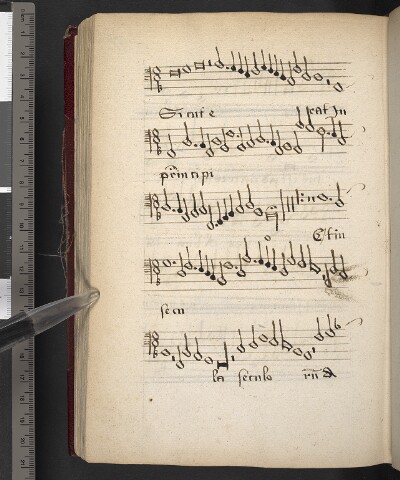 Sicut e rat In
prīncipi
Et in
secu
la seculo rū A